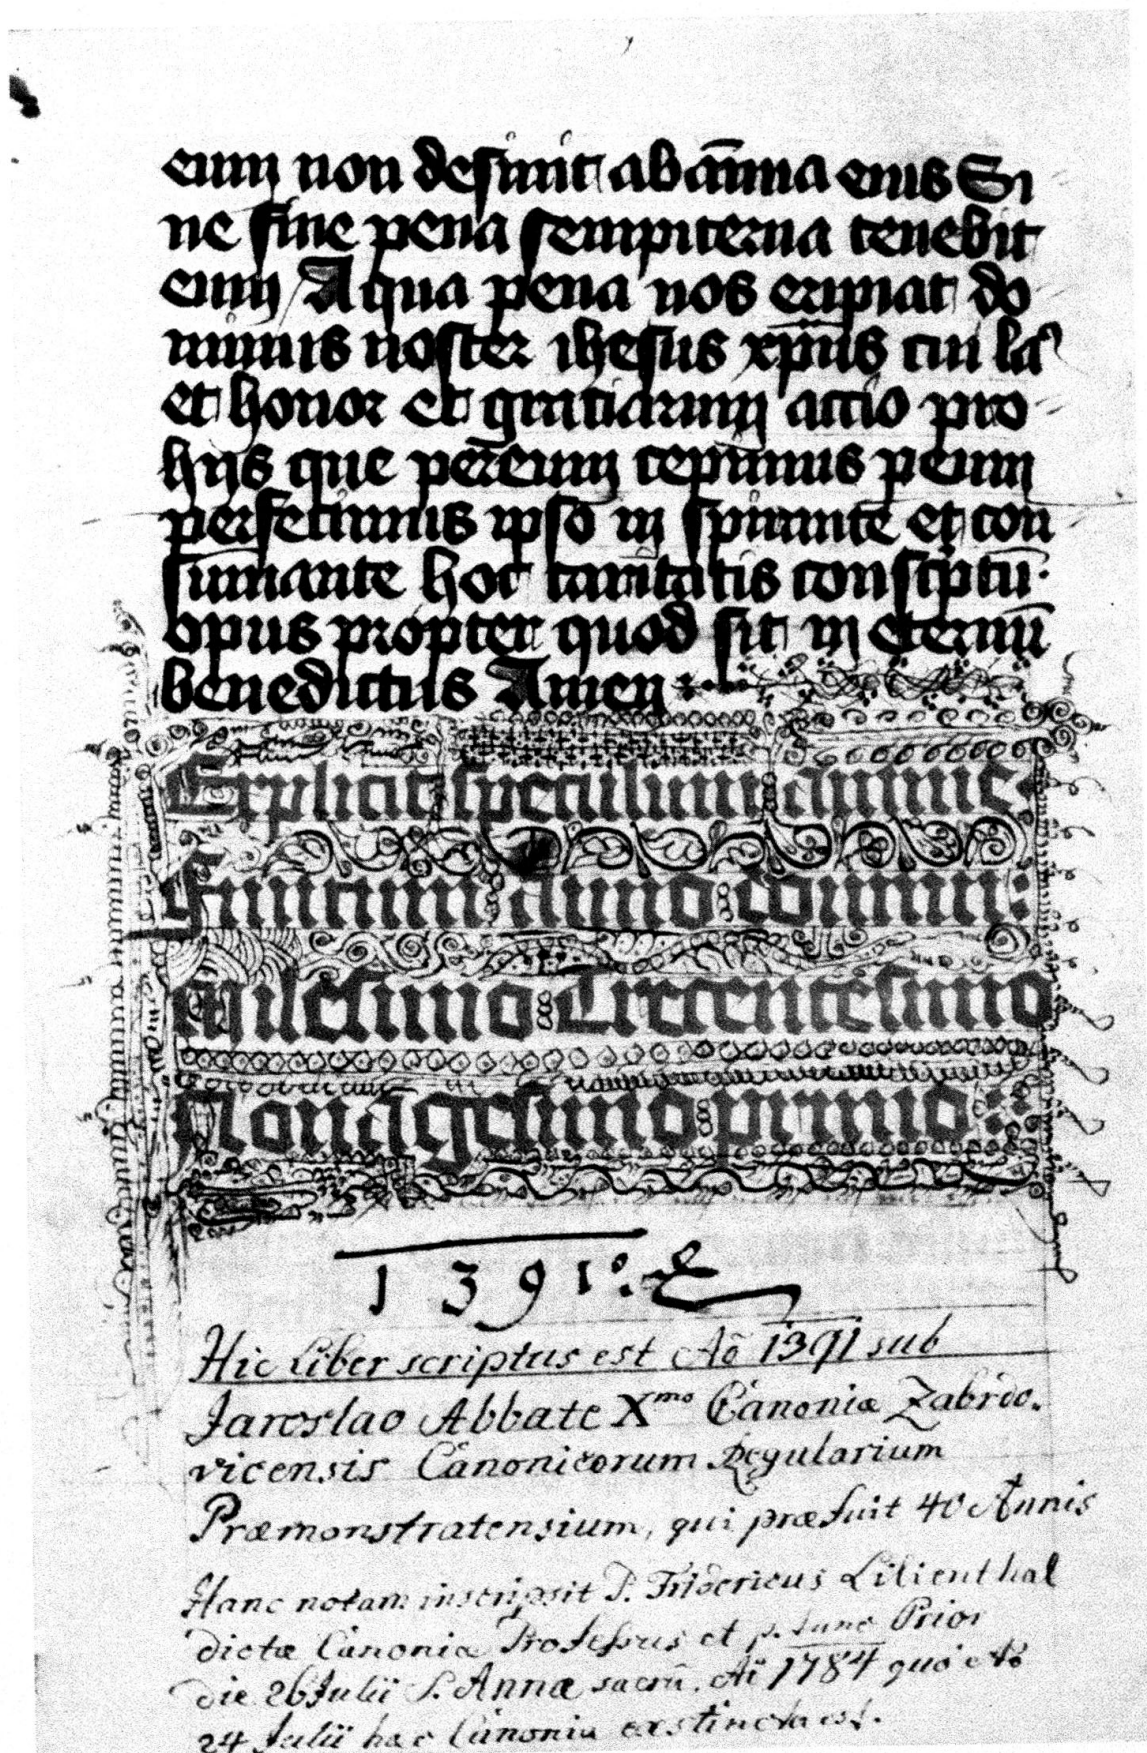 eum non desinit ab aīma eius Si
ne fine pena sempiterna tenebit
eum A qua pena nos eripiat do
minus noster ihesus xp̄us cui la9
et honor et gratiarum actio pro
hijs que per eum cepimus per eum
perfecimus ipso in spirante et con
sūmante hoc caritatis consc̄ptū
opus propter quod sit in eternū
benedictus Amen
Explicit speculum anime
Finitum anno domini:
Milesimo Trecentesimo
Nonagesimo primo:
1391°.
Hic Liber scriptus est Aō 1391 sub
Jaroslao Abbate Xmo Canoniæ Zabrdo.
vicensis Canonicorum Regularium
Præmonstratensium, qui præfuit 40 Annis
Hanc notam inscripsit P. Fridericus Lilienthal
dictæ Canoniæ Professus et p. tunc Prior
die 26 Julii S. Annæ sacrâ. Aī 1784 quo Aō
24 Julii hæc Canonia exstincta est.